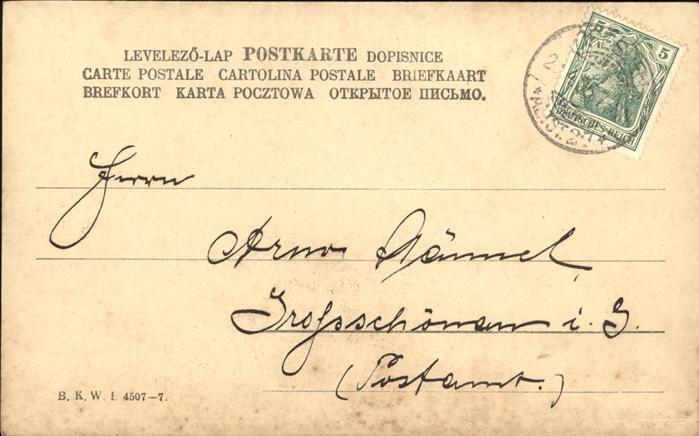 LEVELEZŐ-LAP POSTKARTE DOPISNICE
CARTE POSTALE CARTOLINA POSTALE BRIEFKAART
BREFKORT KARTA POCZTOWA ОТКРЫТОЕ ПИСЬМО.
5
DEUTSCHES REICH
Herrn
Arno Hännel
Grossschönau i. S.
(Postamt.)
B. K. W. I. 4507-7.